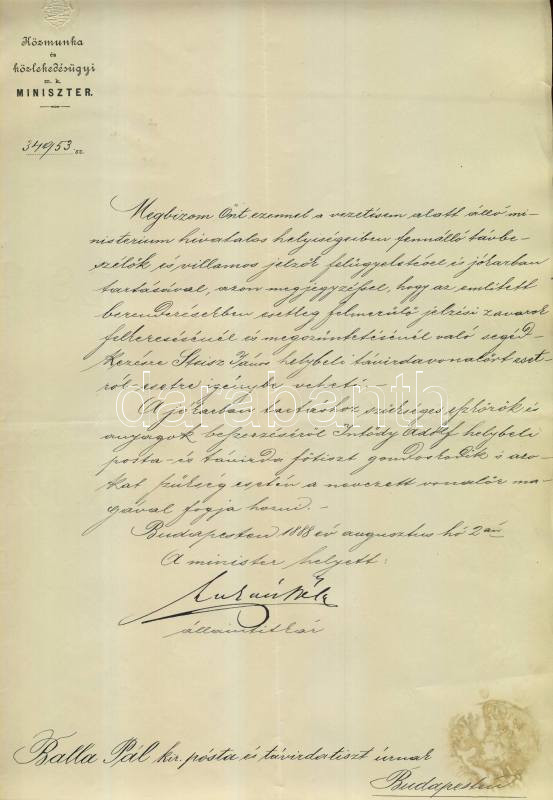 Közmunka
és
közlekedésügyi
m. k.
MINISZTER.
34953 sz.
Megbizom Önt ezennel a vezetésem alatt álló mi-
nisterium hivatalos helyiségeiben fennálló távbe-
szélők és villamos jelzők felügyeletével és jókarban
tartásával, azon megjegyzéssel, hogy az említett
berendezésekben esetleg felmerülő jelzési zavarok
felkeresésénél és megszüntetésénél való segéd-
kezésre János helybeli távirdavonalőrt eset-
ről-esetre igénybe veheti.-
A jókarban tartáshoz szükséges eszközök és
anyagok beszerzéséről Intódy Adolf helybeli
posta- és távirda főtiszt gondoskodik s azo-
kat szükség esetén a nevezett vonalőr ma-
gával fogja hozni.-
Budapesten 1888 év augusztus hó 2án
A minister helyett:
Lukács Béla
államtitkár
Balla Pál kir. posta és távirdatiszt úrnak
Budapesten
darabanth